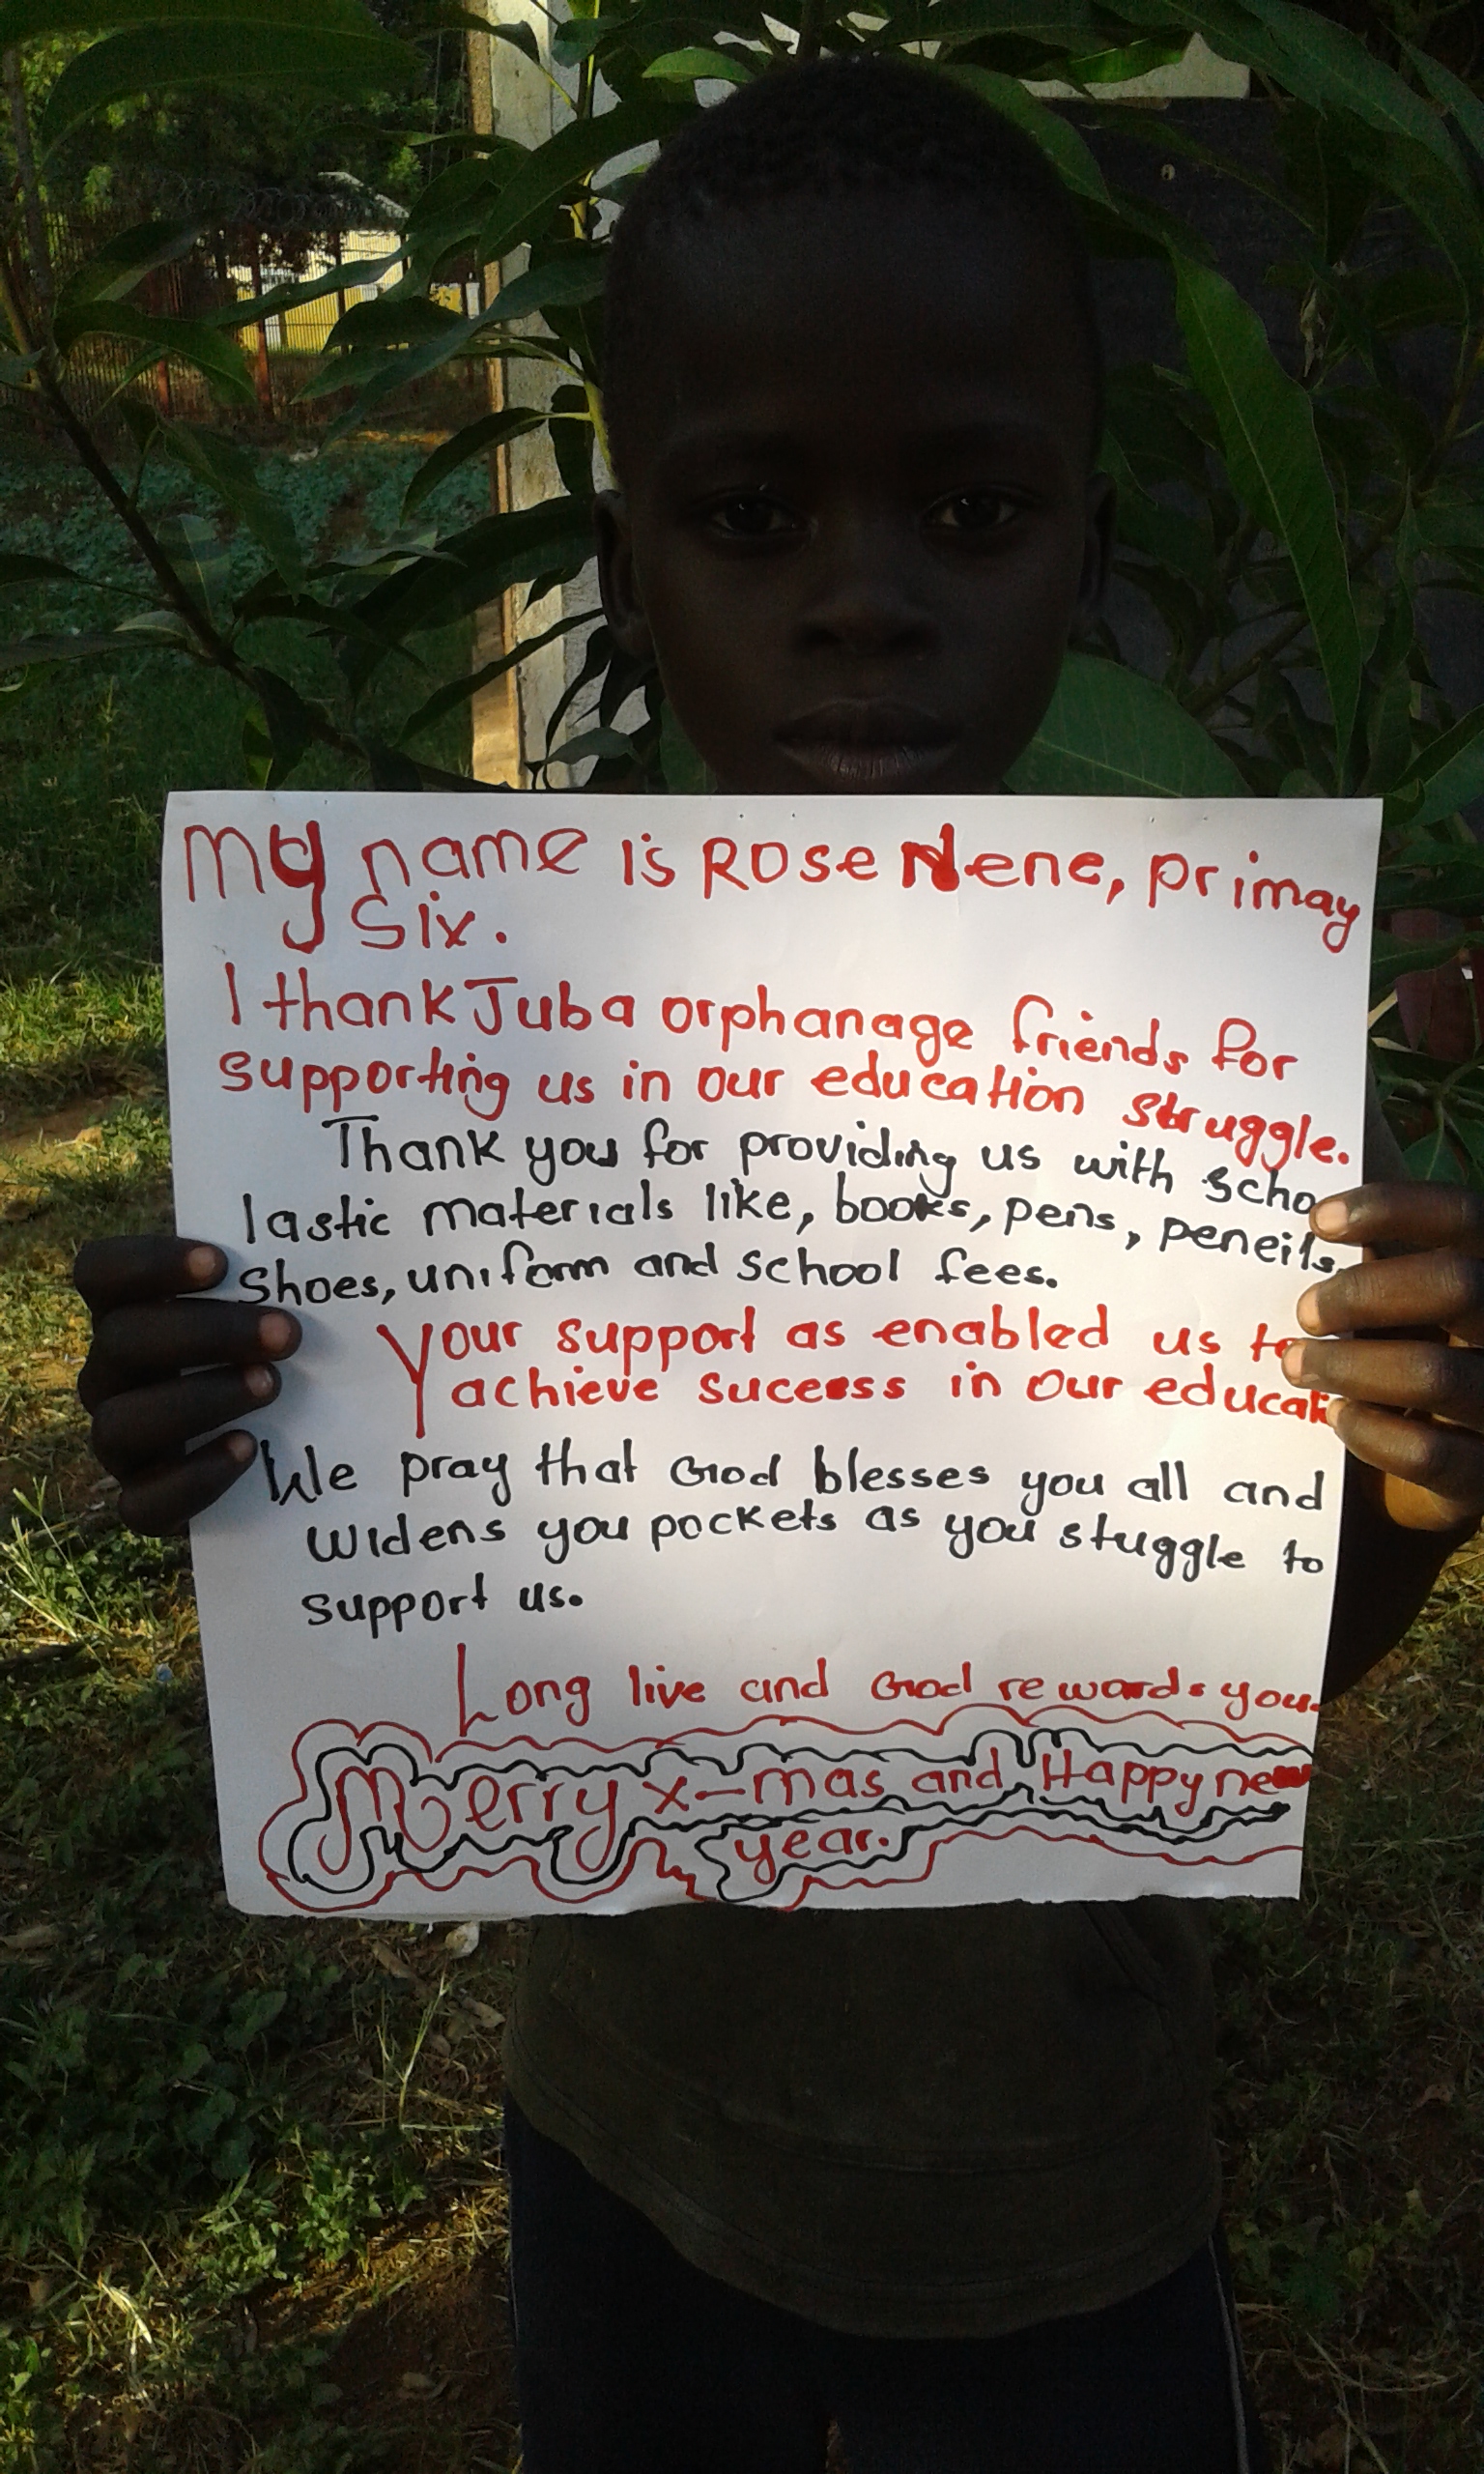 My name is Rose Nene, primay
Six.
I thank Juba orphanage friends for
supporting us in our education struggle.
Thank you for providing us with scho
lastic materials like, books, pens, pencils,
shoes, uniform and school fees.
Your support as enabled us to
achieve sucess in our educati
We pray that God blesses you all and
widens you pockets as you stuggle to
support us.
Long live and God rewards you.
Merry x-mas and Happy new
year.